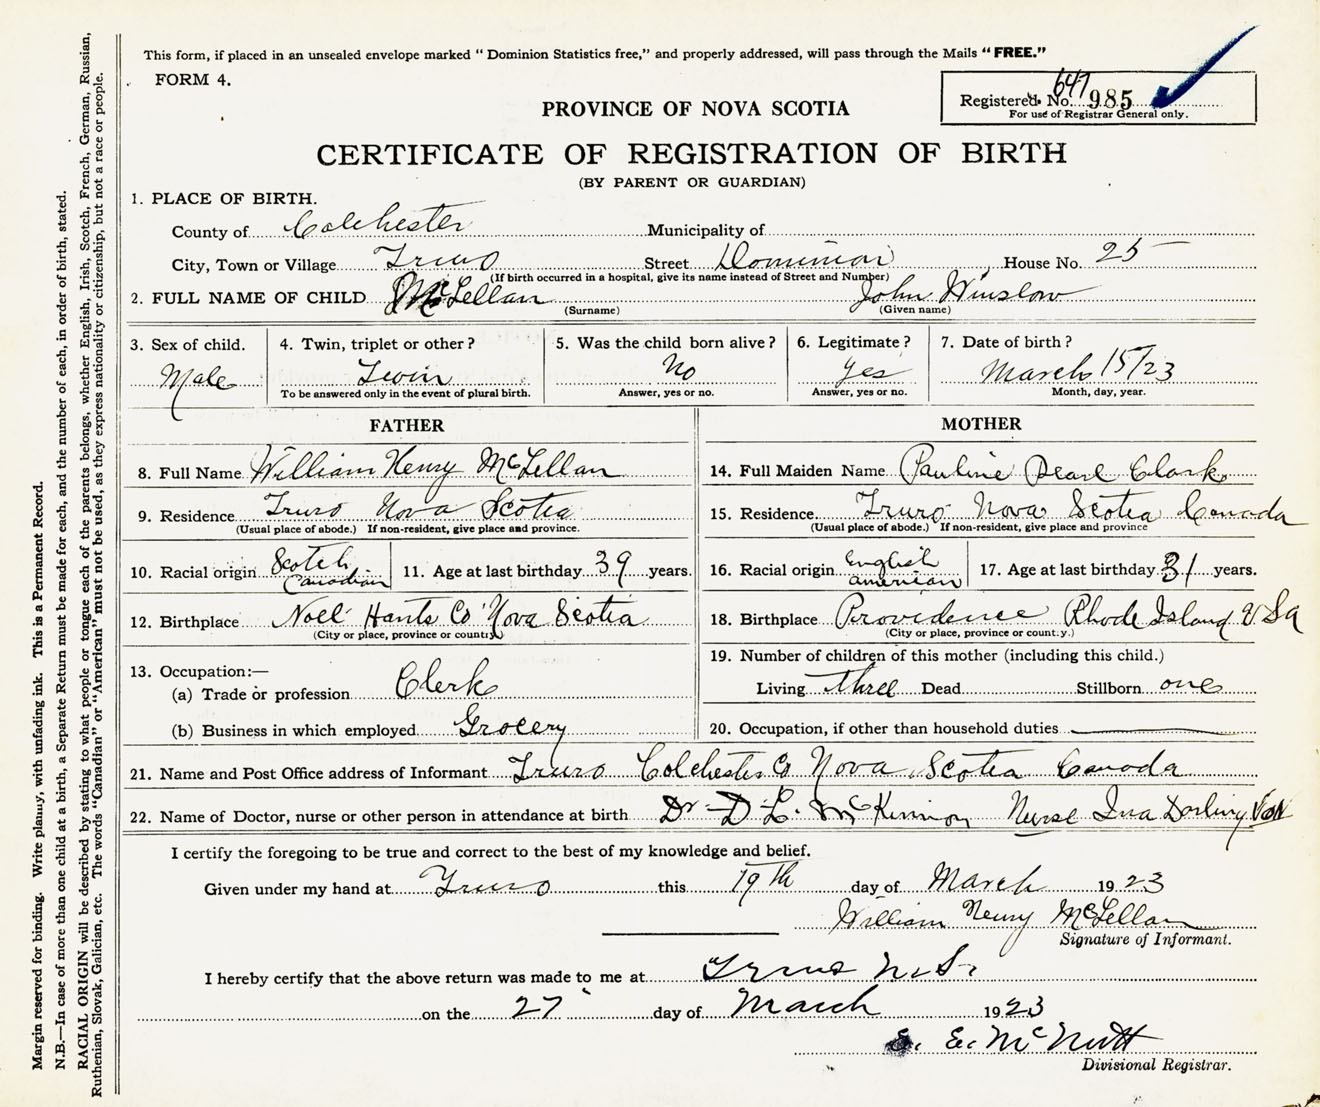 This form, if placed in an unsealed envelope marked "Dominion Statistics free," and properly addressed, will pass through the Mails "FREE."
FORM 4.
647
Registered No. 985
For use of Registrar General only.
PROVINCE OF NOVA SCOTIA
CERTIFICATE OF REGISTRATION OF BIRTH
(BY PARENT OR GUARDIAN)
1. PLACE OF BIRTH.
County of Colchester Municipality of
City, Town or Village Truro Street Dominion House No. 25
(If birth occurred in a hospital, give its name instead of Street and Number)
2. FULL NAME OF CHILD McLellan John Winslow
(Surname) (Given name)
3. Sex of child. 4. Twin, triplet or other? 5. Was the child born alive? 6. Legitimate? 7. Date of birth?
Male Twin No Yes March 15/23
To be answered only in the event of plural birth. Answer, yes or no. Answer, yes or no. Month, day, year.
FATHER
8. Full Name William Henry McLellan
9. Residence Truro Nova Scotia
(Usual place of abode.) If non-resident, give place and province.
10. Racial origin Scotch Canadian 11. Age at last birthday 39 years.
12. Birthplace Noel Hants Co Nova Scotia
(City or place, province or county)
13. Occupation:—
(a) Trade or profession Clerk
(b) Business in which employed Grocery
MOTHER
14. Full Maiden Name Pauline Pearl Clark
15. Residence Truro Nova Scotia Canada
(Usual place of abode.) If non-resident, give place and province
16. Racial origin English American 17. Age at last birthday 31 years.
18. Birthplace Providence Rhode Island U.Sa
(City or place, province or count.y.)
19. Number of children of this mother (including this child.)
Living three Dead Stillborn one
20. Occupation, if other than household duties
21. Name and Post Office address of Informant Truro Colchester Co Nova Scotia Canada
22. Name of Doctor, nurse or other person in attendance at birth Dr D L. McKinnon Nurse Ina Dorling
I certify the foregoing to be true and correct to the best of my knowledge and belief.
Given under my hand at Truro this 19th day of March 1923
William Henry McLellan
Signature of Informant.
I hereby certify that the above return was made to me at Truro N.S.
on the 27 day of March 1923
E. E. McNutt
Divisional Registrar.
Margin reserved for binding. Write plainly, with unfading ink. This is a Permanent Record.
N.B.—In case of more than one child at a birth, a Separate Return must be made for each, and the number of each, in order of birth, stated.
RACIAL ORIGIN will be described by stating to what people or tongue each of the parents belongs, whether English, Irish, Scotch, French, German, Russian,
Ruthenian, Slovak, Galician, etc. The words "Canadian" or "American" must not be used, as they express nationality or citizenship, but not a race or people.